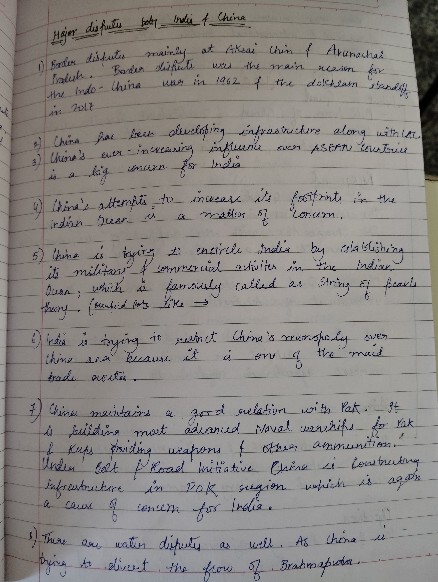 Major disputes betw India & China
1) Border disputes mainly at Aksai Chin & Arunachal
Pradesh. Border dispute was the main reason for
the Indo-China war in 1962 & the dokhlam standoff
in 2017
2) China has been developing infrastructure along with LAC
3) China's ever-increasing influence over ASEAN countries
is a big concern for India
4) China's attempts to increase its footprints in the
Indian Ocean is a matter of concern.
5) China is trying to encircle India by establishing
its military & commercial activites in the Indian
Ocean, which is famously called as String of pearls
theory. like →
6) India is trying to restrict China's monopoly over
China sea because it is one of the
trade routes.
7) China maintains a good relation with Pak. It
is building most advanced Naval warships for Pak
& Keeps weapons & other ammunition.
Under Belt & Road Initiative China is Constructing
infrastructure in POK region which is again
a cause of concern for India.
8) There are water disputes as well. As China is
trying to divert the flow of Brahmaputra.